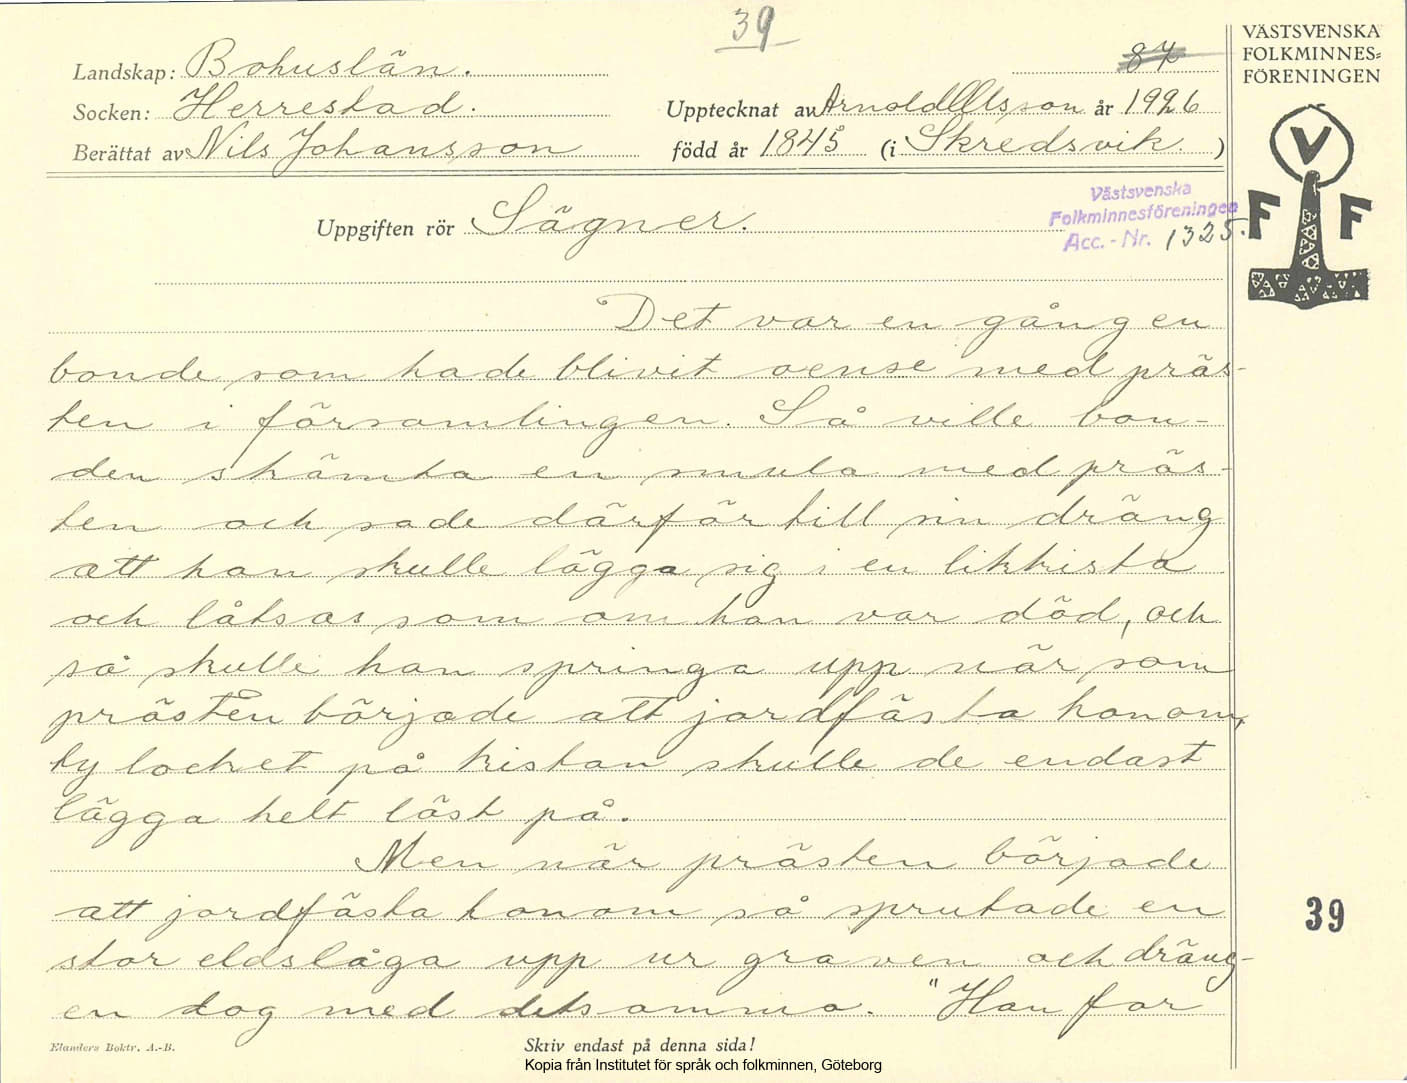 39
87
VÄSTSVENSKA
FOLKMINNES=
FÖRENINGEN
Landskap: Bohuslän.
Socken: Herrestad. Upptecknat av Arnold Olsson år 1926
Berättat av Nils Johansson född år 1845 (i Skredsvik. )
V
F F
Uppgiften rör Sägner.
Västsvenska
Folkminnesföreningen
Acc. - Nr. 1325.
Det var en gång en
bonde som hade blivit oense med präs-
ten i församlingen. Så ville bon-
den skämta en smula med präs-
ten och sade därför till sin dräng
att han skulle lägga sig i en likkista
och låtsas som om han var död, och
så skulle han springa upp när som
prästen började att jordfästa honom,
ty locket på kistan skulle de endast
lägga helt löst på.
Men när prästen började
att jordfästa honom så sprutade en
stor eldslåga upp ur graven och dräng-
en dog med detsamma. "Han for
39
Elanders Boktr. A.-B.
Skriv endast på denna sida!
Kopia från Institutet för språk och folkminnen, Göteborg